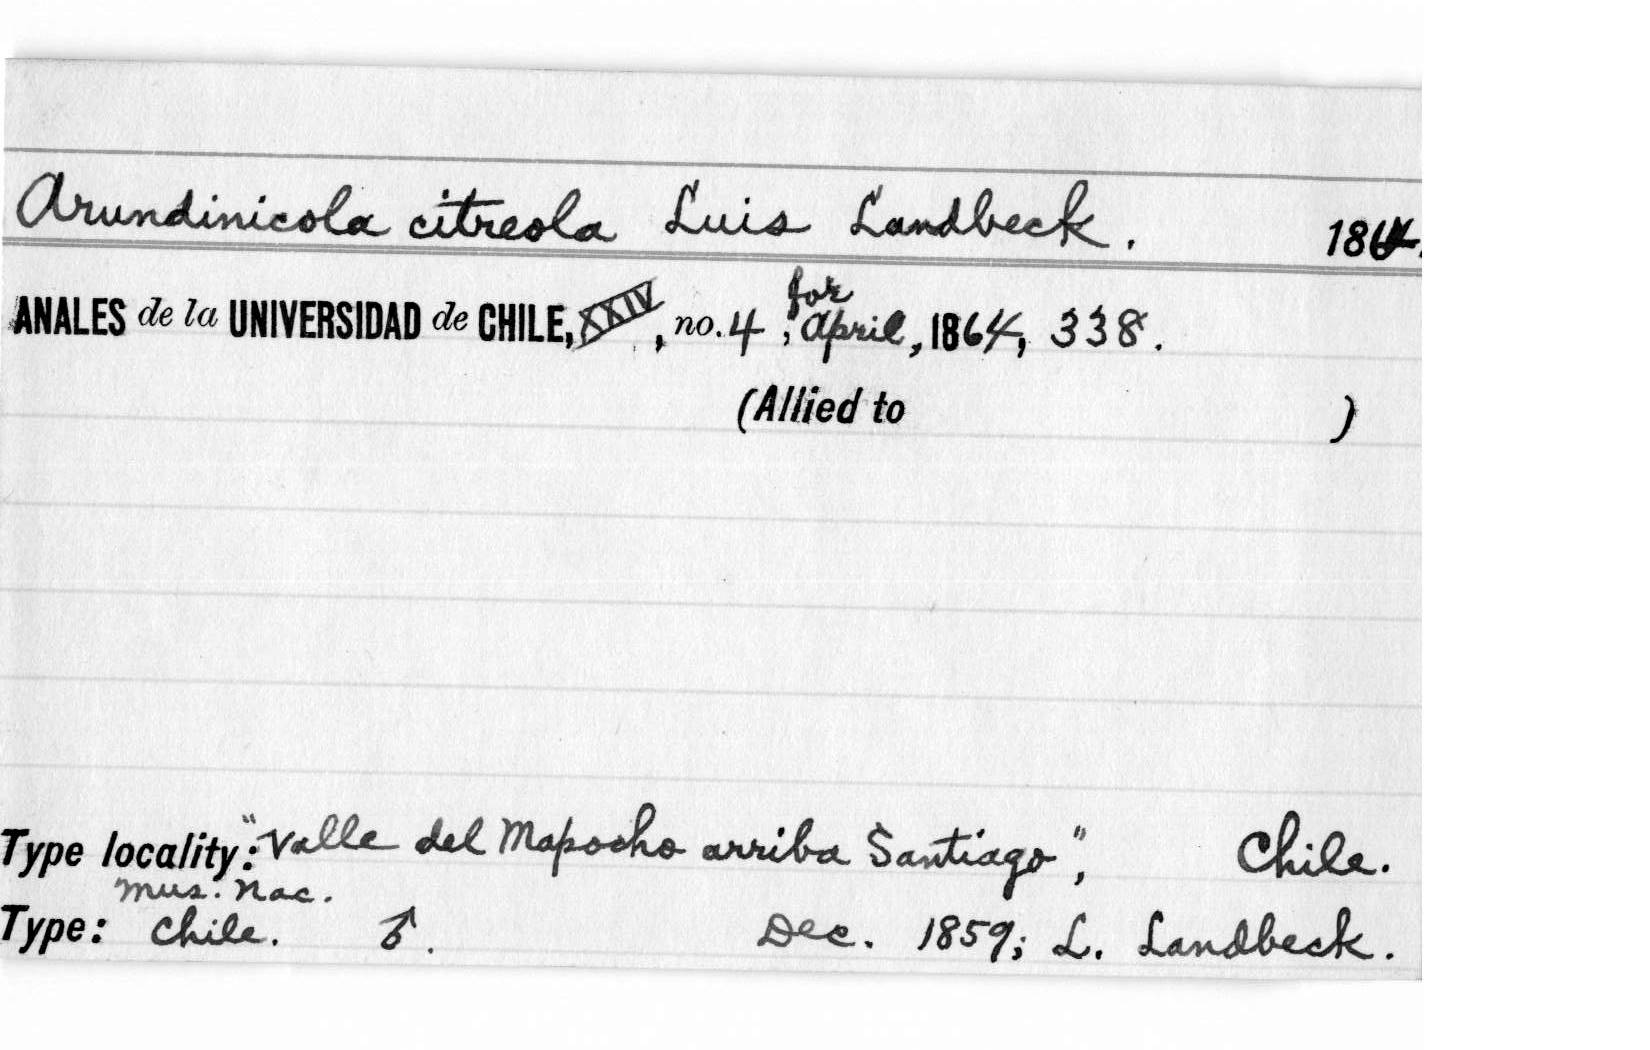 Arundinicola citreola Luis Landbeck. 1864.
ANALES de la UNIVERSIDAD de CHILE, XXIV, no. 4, for April, 1864, 338.
(Allied to )
Type locality: "Valle del Mapocho arriba Santiago", Chile.
Mus. Nac.
Type: Chile. ♂. Dec. 1859; L. Landbeck.